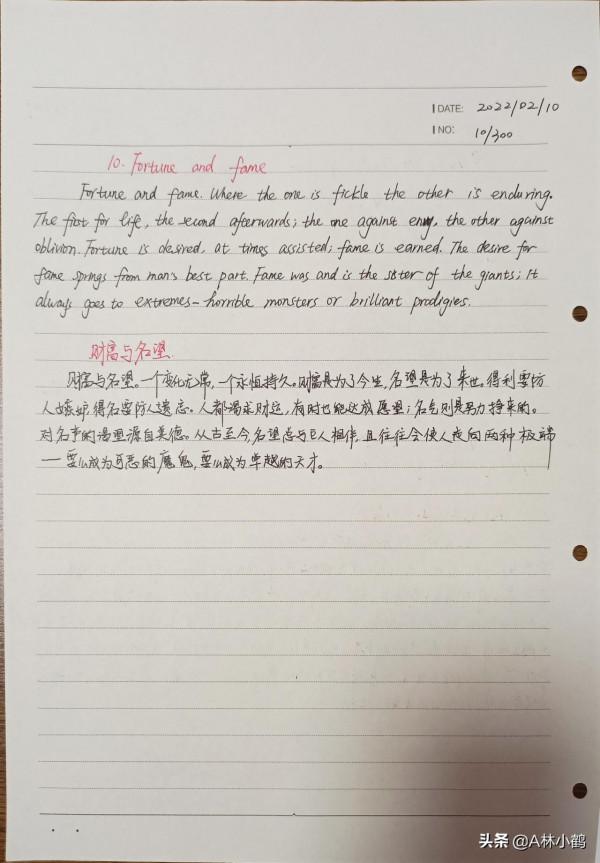 DATE: 2022/02/10
NO: 10/300
10. Fortune and fame
Fortune and fame. Where the one is fickle the other is enduring.
The first for life, the second afterwards; the one against envy, the other against
oblivion. Fortune is desired, at times assisted; fame is earned. The desire for
fame springs from man's best part. Fame was and is the sister of the giants; It
always goes to extremes—horrible monsters or brilliant prodigies.
财富与名望
财富与名望。一个变化无常,一个永恒持久。财富是为了今生,名望是为了来世。得利要防
人嫉妒得名要防人遗忘。人都渴求财运,有时也能达成愿望;名气则是努力挣来的。
对名声的渴望源自美德。从古至今,名望总与巨人相伴,且往往会使人走向两种极端
—要么成为可恶的魔鬼,要么成为卓越的天才。
头条 @A林小鹤